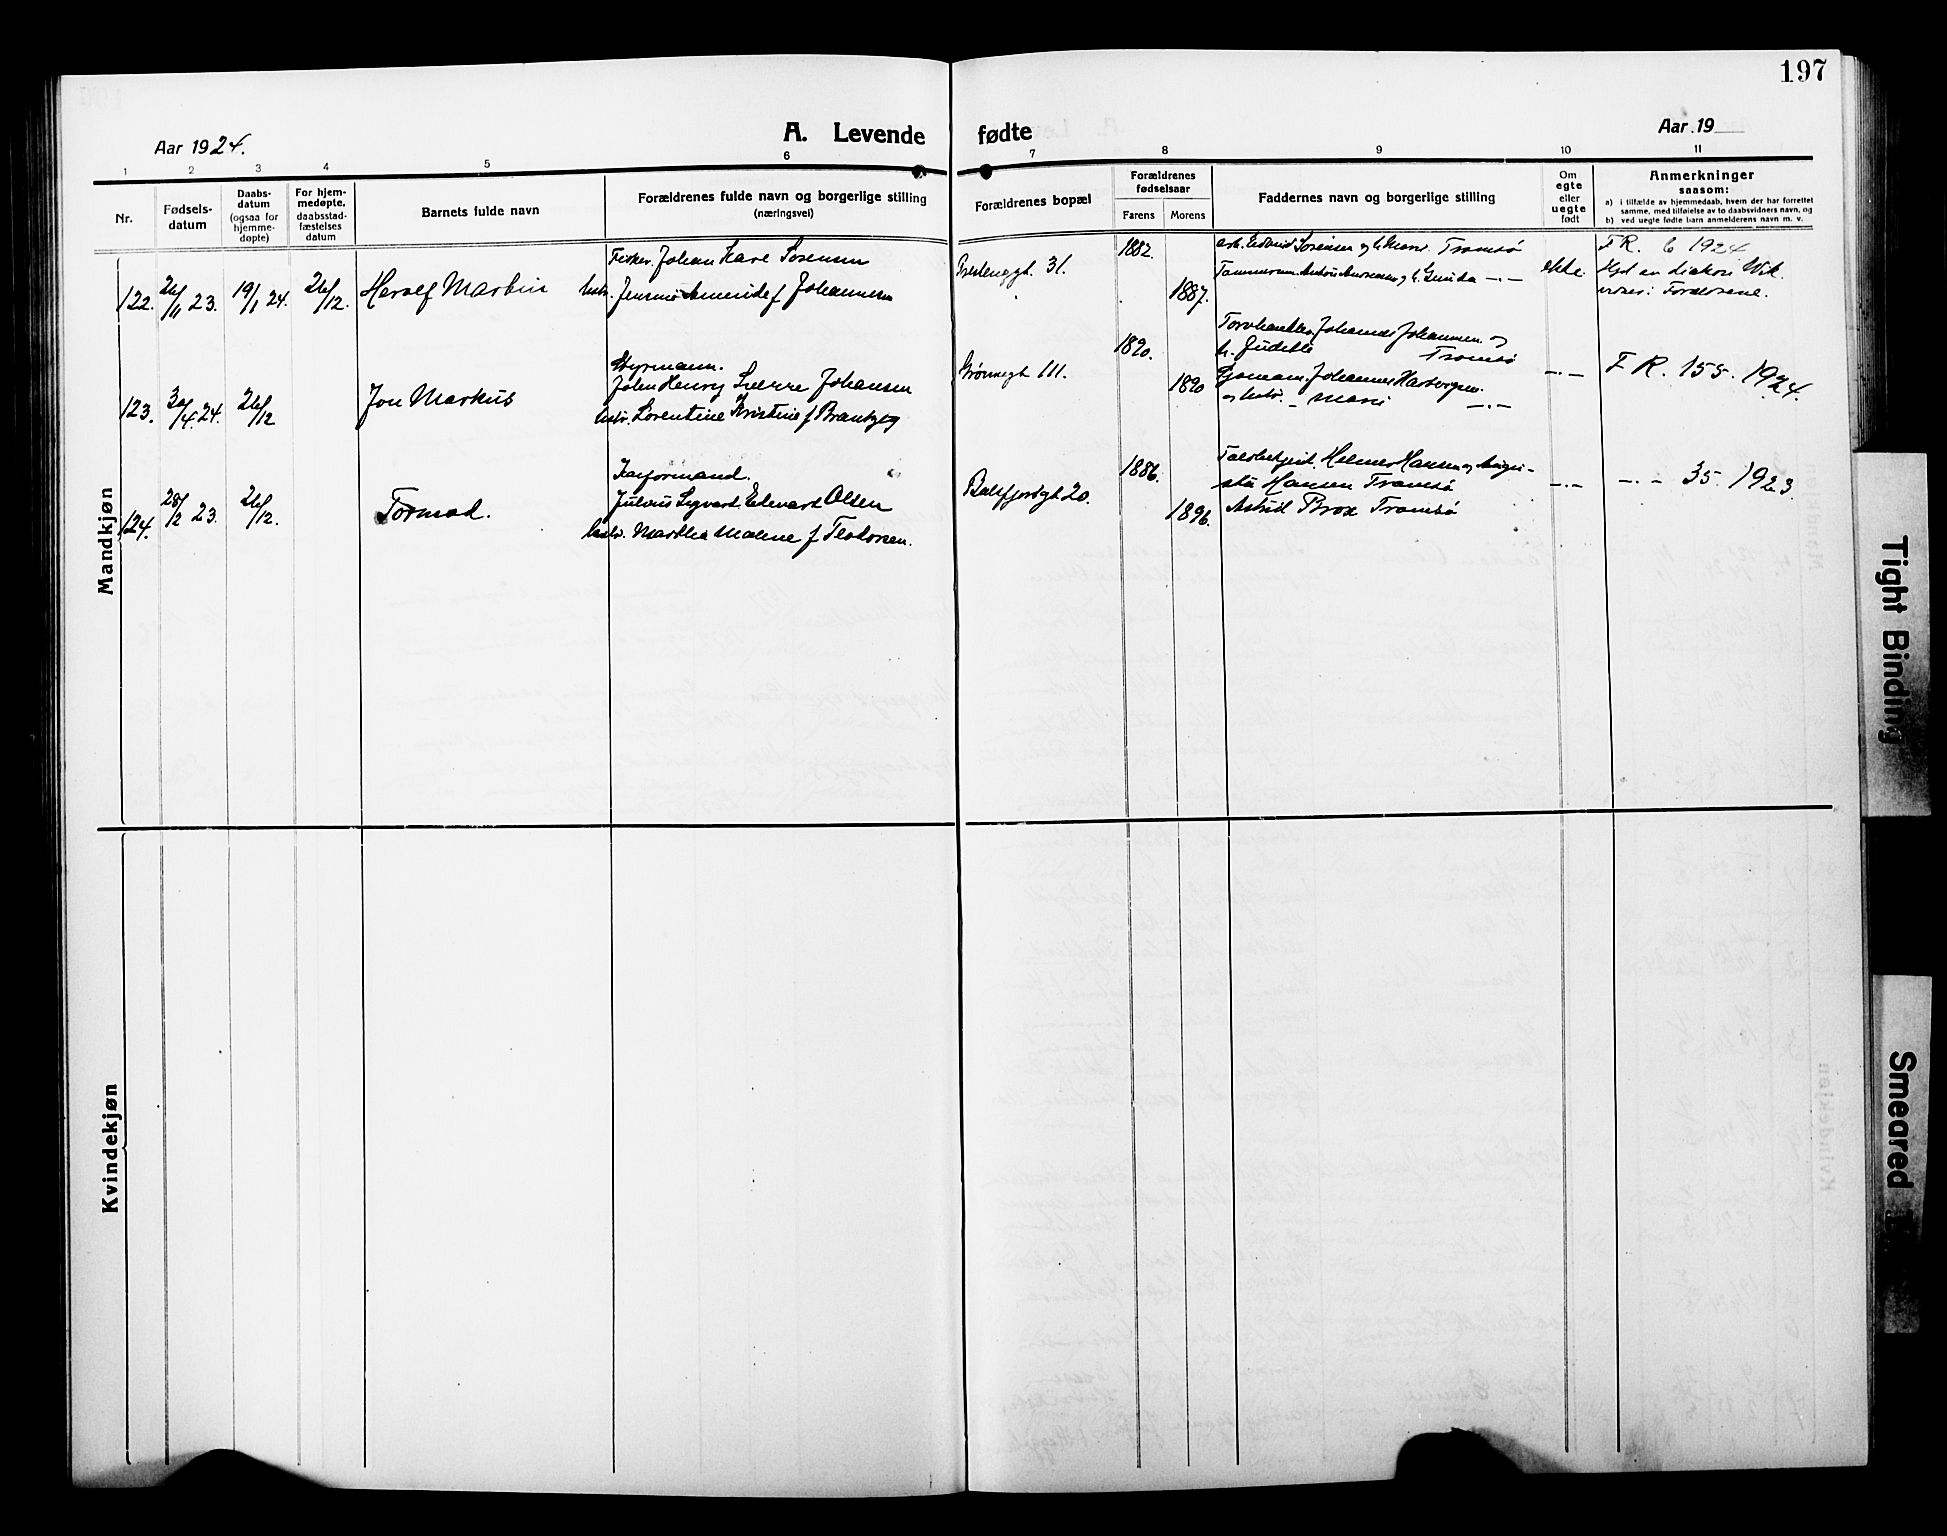 197
Aar 1924.
A. Levende
fødte
Aar 19
1 2 3 4 5 6 7 8 9 10 11
Nr.
Fødsels-
datum
Daabs-
datum
(ogsaa for
hjemme-
døpte)
For hjem-
medøpte,
daabsstad-
fæstelses
datum
Barnets fulde navn
Forældrenes fulde navn og borgerlige stilling
(næringsvei)
Forældrenes bopæl
Forældrenes
fødselsaar
Farens
Morens
Faddernes navn og borgerlige stilling
Om
egte
eller
uegte
født
Anmerkninger
saasom:
a) i tilfælde av hjemmedaab, hvem der har forrettet
samme, med tilføielse av to daabsvidners navn, og
b) ved uegte fødte barn anmelderens navn m. v.
Mandkjøn
122. 26/11 23. 19/1 24. 26/12.
Martin
Fisker. Johan Kare Sørensen
Johannesen
31.
1882.
1887.
Tromsø
ekte
F R. 6 1924
Hjd av diakon Wik.
vidner: Forældrene.
123. 30/4. 24. 26/12
Jon Markus
Styrmann.
John Henry Sverre Johansen
hstr. Lorentine Kristine f.
Grønnegt 111.
1890.
1890
Johannes Johannesen og
Tromsø
Johannes
og hstr. - Marie -.-
-.-
F R. 155. 1924.
124. 28/2 23. 26/12.
Tormod.
Julius Sigvard Edvard Olsen
hstr. Martha Malene f.
Balsfjordgt 20.
1886.
1896.
Helmer Hansen og Augu-
sta Hansen Tromsø
Astrid Brox Tromsø
-.-
-.- 35. 1923.
Kvindekjøn
Tight Binding
Smeared